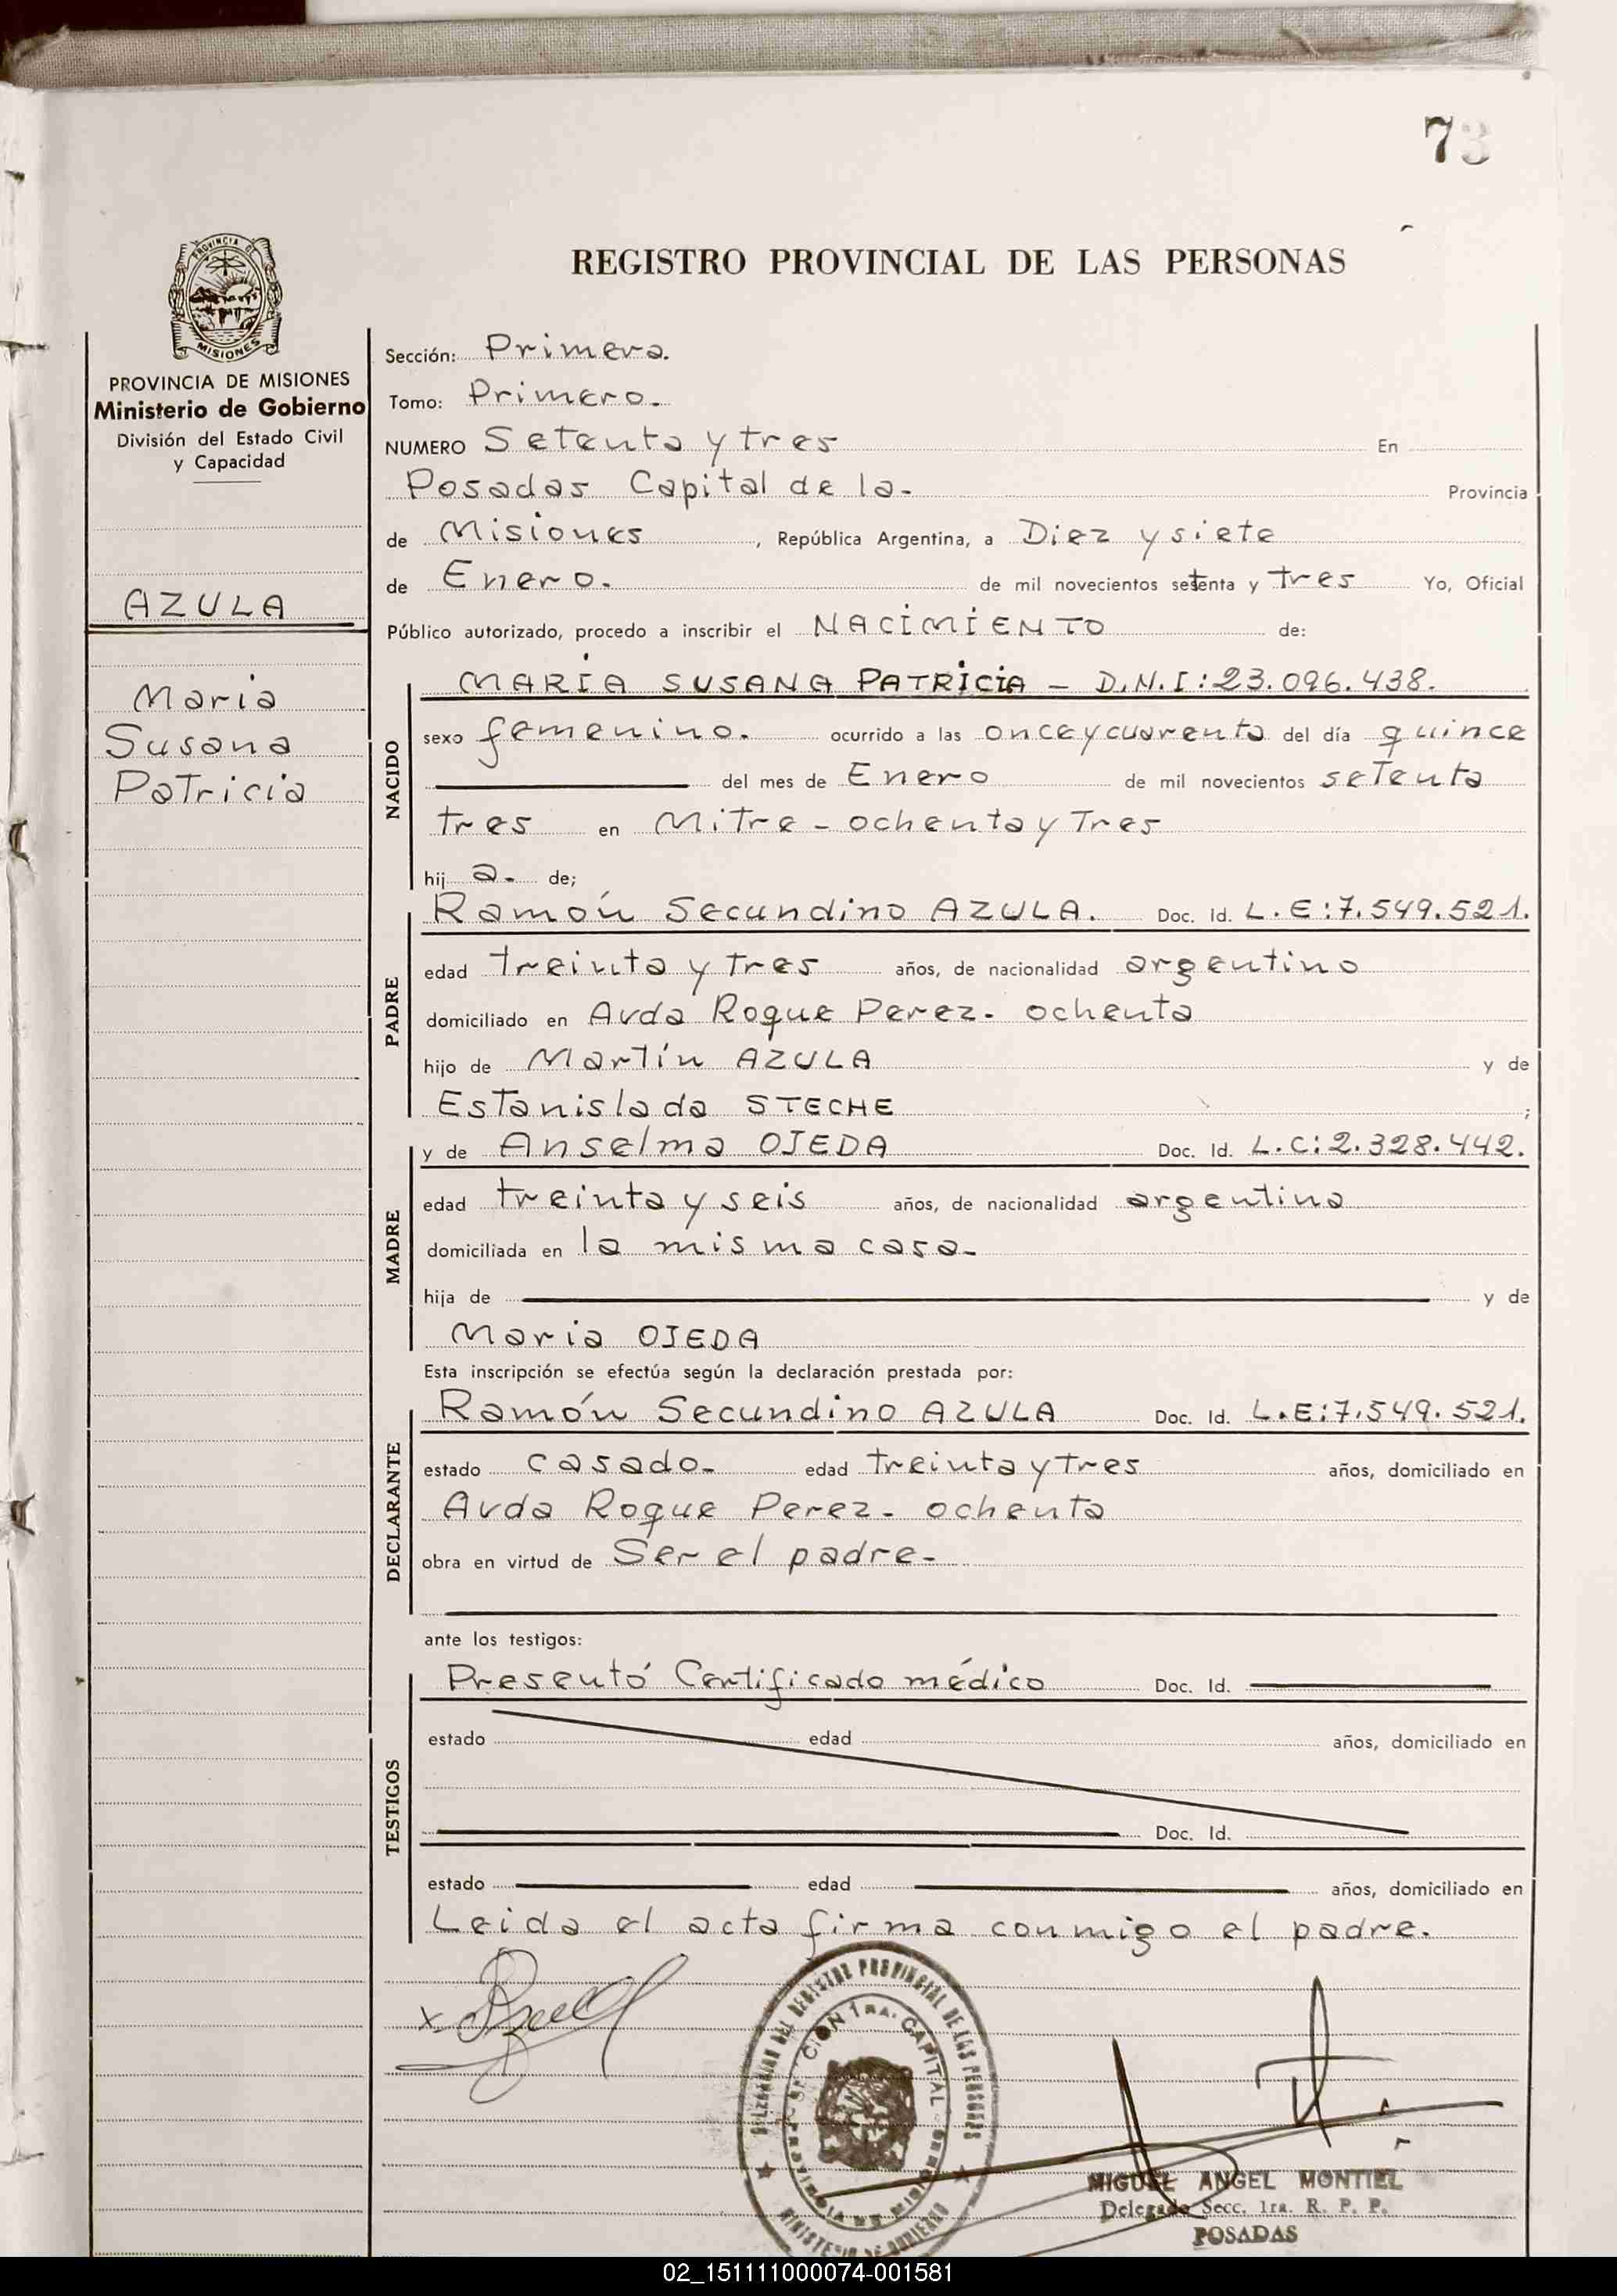 73
REGISTRO PROVINCIAL DE LAS PERSONAS
PROVINCIA DE
MISIONES
PROVINCIA DE MISIONES
Ministerio de Gobierno
División del Estado Civil
y Capacidad
AZULA
Maria
Susana
Patricia
Sección: Primera.
Tomo: Primero.
NUMERO Setenta y tres En
Posadas Capital de la- Provincia
de Misiones, República Argentina, a Diez y siete
de Enero. de mil novecientos setenta y tres Yo, Oficial
Público autorizado, procedo a inscribir el NACIMIENTO de:
NACIDO
MARÍA SUSANA PATRICIA - D.N.I:23.096.438.
sexo femenino. ocurrido a las once y cuarenta del día quince
del mes de Enero de mil novecientos setenta
tres en Mitre - ochenta y Tres
hij a. de;
PADRE
Ramón Secundino AZULA. Doc. Id. L.E:7.549.521.
edad treinta y tres años, de nacionalidad argentino
domiciliado en Avda Roque Perez- ochenta
hijo de Martín AZULA y de
Estanislada STECHE ;
MADRE
y de Anselma OJEDA Doc. Id. L.C:2.328.442.
edad treinta y seis años, de nacionalidad argentina
domiciliada en la misma casa-
hija de y de
Maria OJEDA
Esta inscripción se efectúa según la declaración prestada por:
DECLARANTE
Ramón Secundino AZULA Doc. Id. L.E:7.549.521.
estado casado- edad treinta y tres años, domiciliado en
Avda Roque Perez- ochenta
obra en virtud de Ser el padre-
ante los testigos:
TESTIGOS
Presentó Certificado médico Doc. Id.
estado edad años, domiciliado en
Doc. Id.
estado edad años, domiciliado en
Leida el acta firma conmigo el padre.
DEL REGISTRO PROVINCIAL DE LAS PERSONAS
1RA. CAPITAL
MINISTERIO DE GOBIERNO
MIGUEL ANGEL MONTIEL
Delegado Secc. 1ra. R. P. P.
POSADAS
02_151111000074-001581